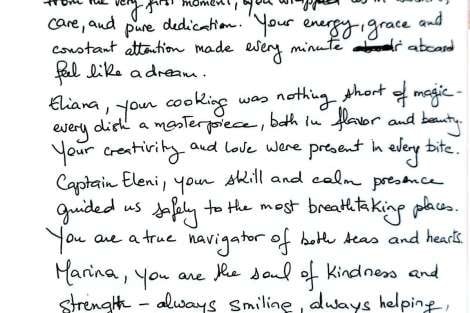 from the very first moment, you wrapped us in
care, and pure dedication. Your energy, grace and
constant attention made every minute aboard
feel like a dream.
Eliana, your cooking was nothing short of magic -
every dish a masterpiece, both in flavor and beauty.
Your creativity and love were present in every bite.
Captain Eleni, your skill and calm presence
guided us safely to the most breathtaking places.
You are a true navigator of both seas and hearts.
Marina, you are the soul of kindness and
strength - always smiling, always helping,